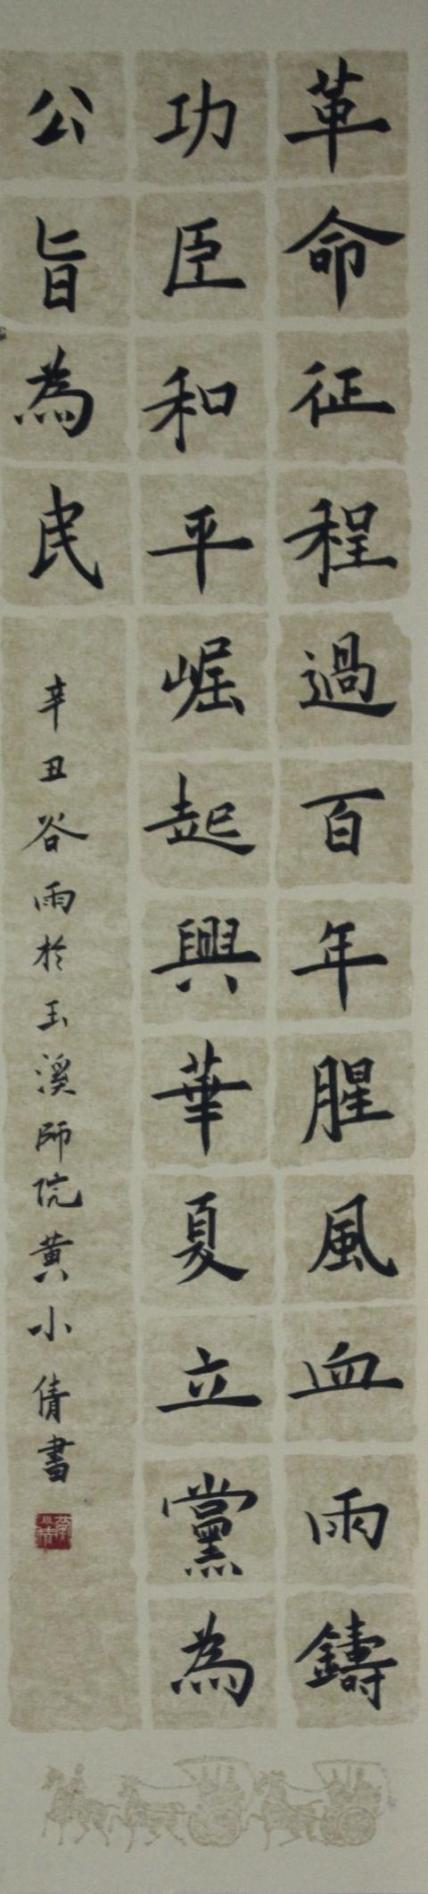 革命征程過百年腥風血雨鑄
功臣和平崛起興華夏立黨為
公旨為民
辛丑谷雨於玉溪師院黄小倩書